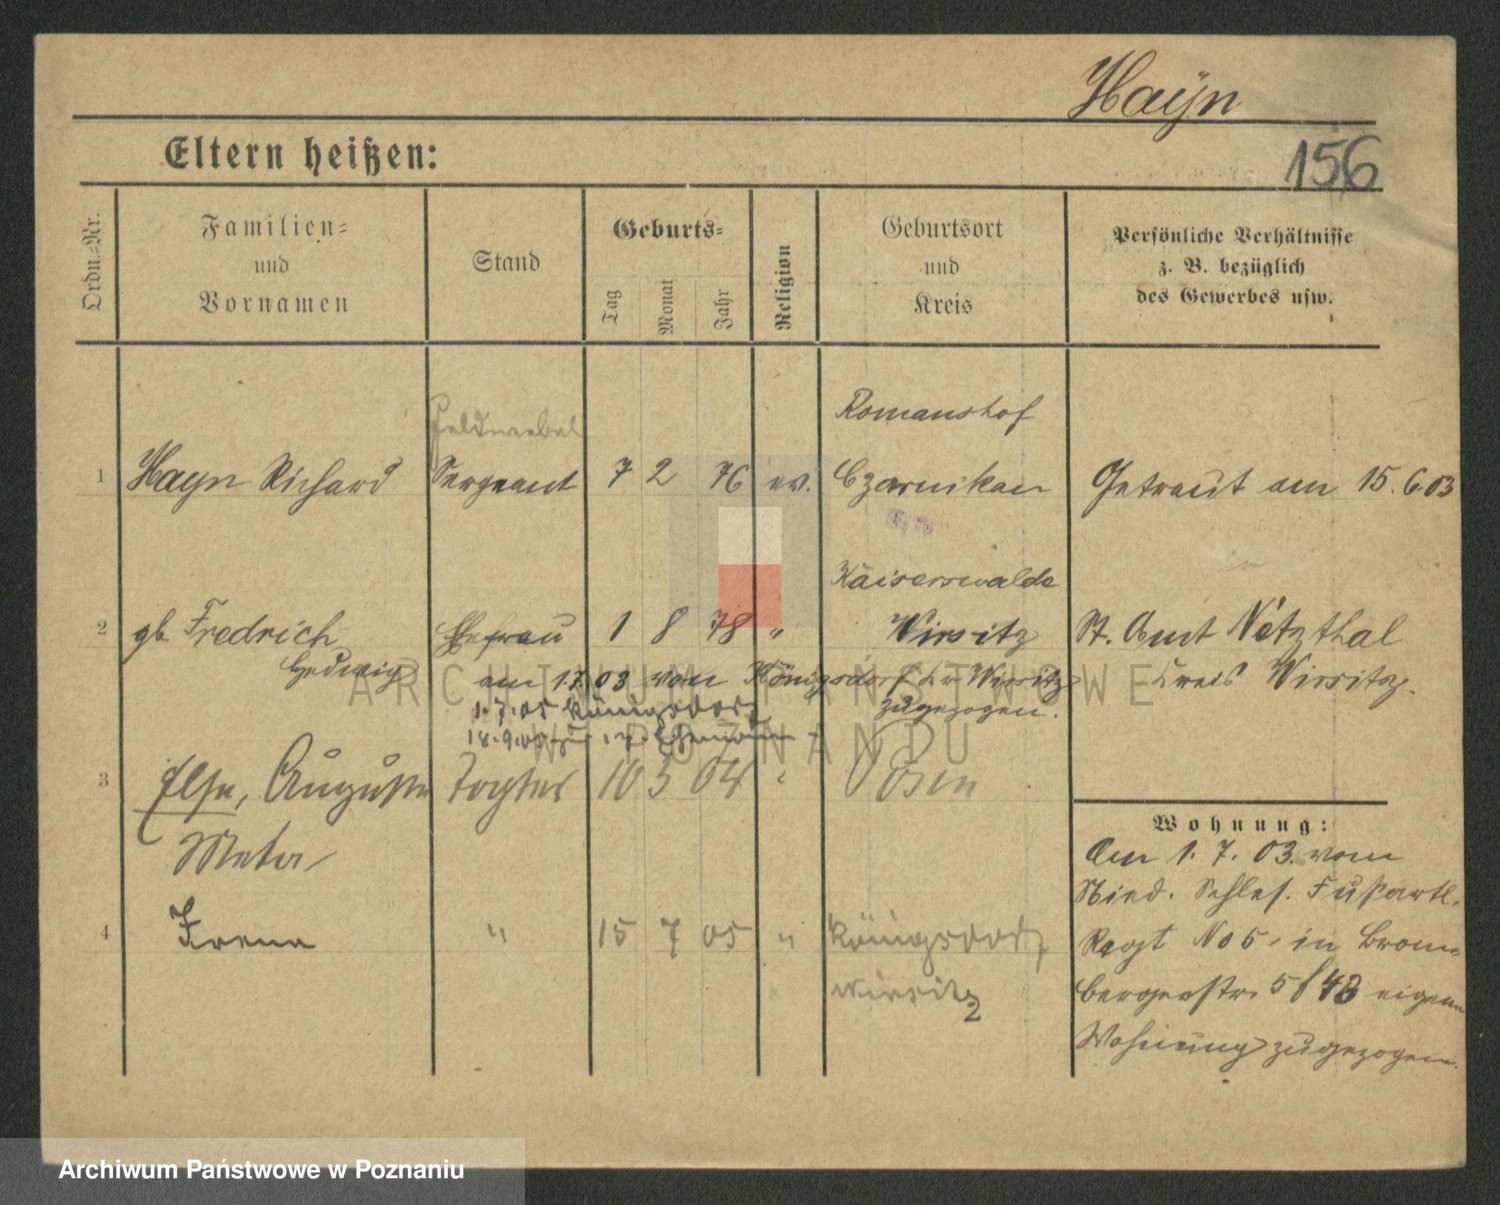 Haÿn
156
Eltern heißen:
Ordn.-Nr.
Familien- und Vornamen
Stand
Geburts-
Tag
Monat
Jahr
Religion
Geburtsort und Kreis
Persönliche Verhältnisse
z. B. bezüglich
des Gewerbes usw.
Feldwebel
Romanshof
1 Hayn Richard Sergeant 7 2 76 ev. Czarnikau Getraut am 15.6.03
Kaiserswalde
2 gb. Fredrich Ehefrau 1 8 78 " Wirsitz St. Amt Netzthal
Hedwig
Kreis Wirsitz.
am 1.7.03 von Königsdorf Kr. Wirsitz
zugezogen.
1.7.05 Königsdorf
18.9.05 zu
3 Else, Auguste Tochter 10 5 04 " Posen
Meta
4 Irena " 15 7 05 " Königsdorf
Wirsitz
Wohnung:
Am 1.7.03. vom
Nied. Schles. Fußartl.
Regt No 5, in Brom-
bergerstr. 5/43 eigene
Wohnung zugezogen.
ARCHIWUM PAŃSTWOWE
W POZNANIU
Archiwum Państwowe w Poznaniu